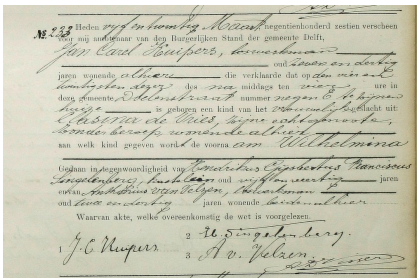 No 223
Heden vijf en twintig Maart negentienhonderd zestien verscheen
voor mij ambtenaar van den Burgerlijken Stand der gemeente Delft,
Jan Carel Kuipers,
oud zeven en dertig
jaren wonende alhier die verklaarde dat op den vier en
twintigsten dezer des na middags ten vier ure in
deze gemeente Doelenstraat nummer negen te zijnen
huize is geboren een kind van het vrouwelijk geslacht uit:
Casina de Vries, zijne echtgenoote,
zonder beroep wonende alhier
aan welk kind gegeven word. de voornam Wilhelmina
Gedaan in tegenwoordigheid van Honoritus Franciscus
Singelenberg, oud vijf en veertig jaren
en van Anthonius van Velzen,
oud twee en dertig jaren wonende beiden alhier
Waarvan akte, welke overeenkomstig de wet is voorgelezen.
1 J. C. Kuipers
2 H. Singelenberg.
3 A. v. Velzen